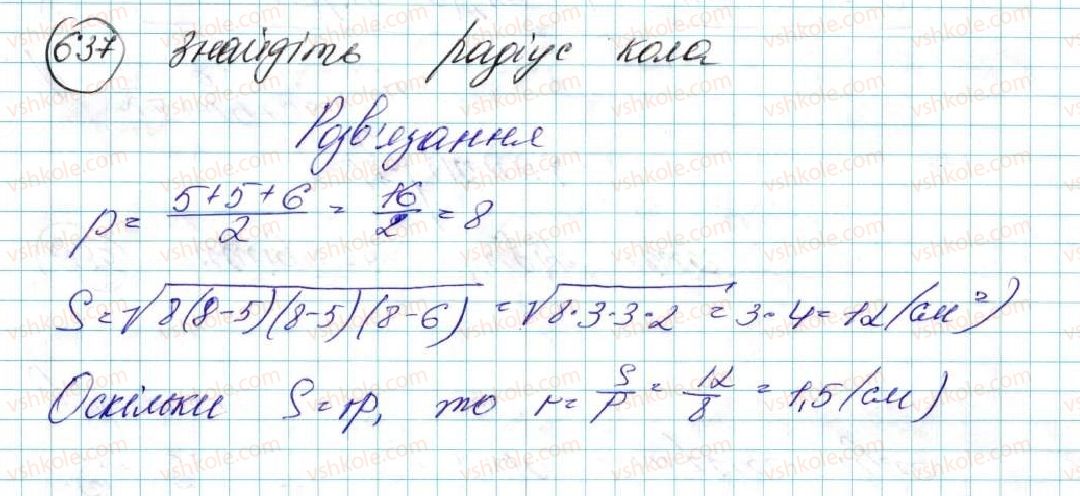 637 Знайдіть радіус кола
Розв'язання
p = (5+5+6)/2 = 16/2 = 8
S = √(8(8-5)(8-5)(8-6)) = √(8·3·3·2) = 3·4 = 12 (см²)
Оскільки S = rp, то r = S/p = 12/8 = 1,5 (см)